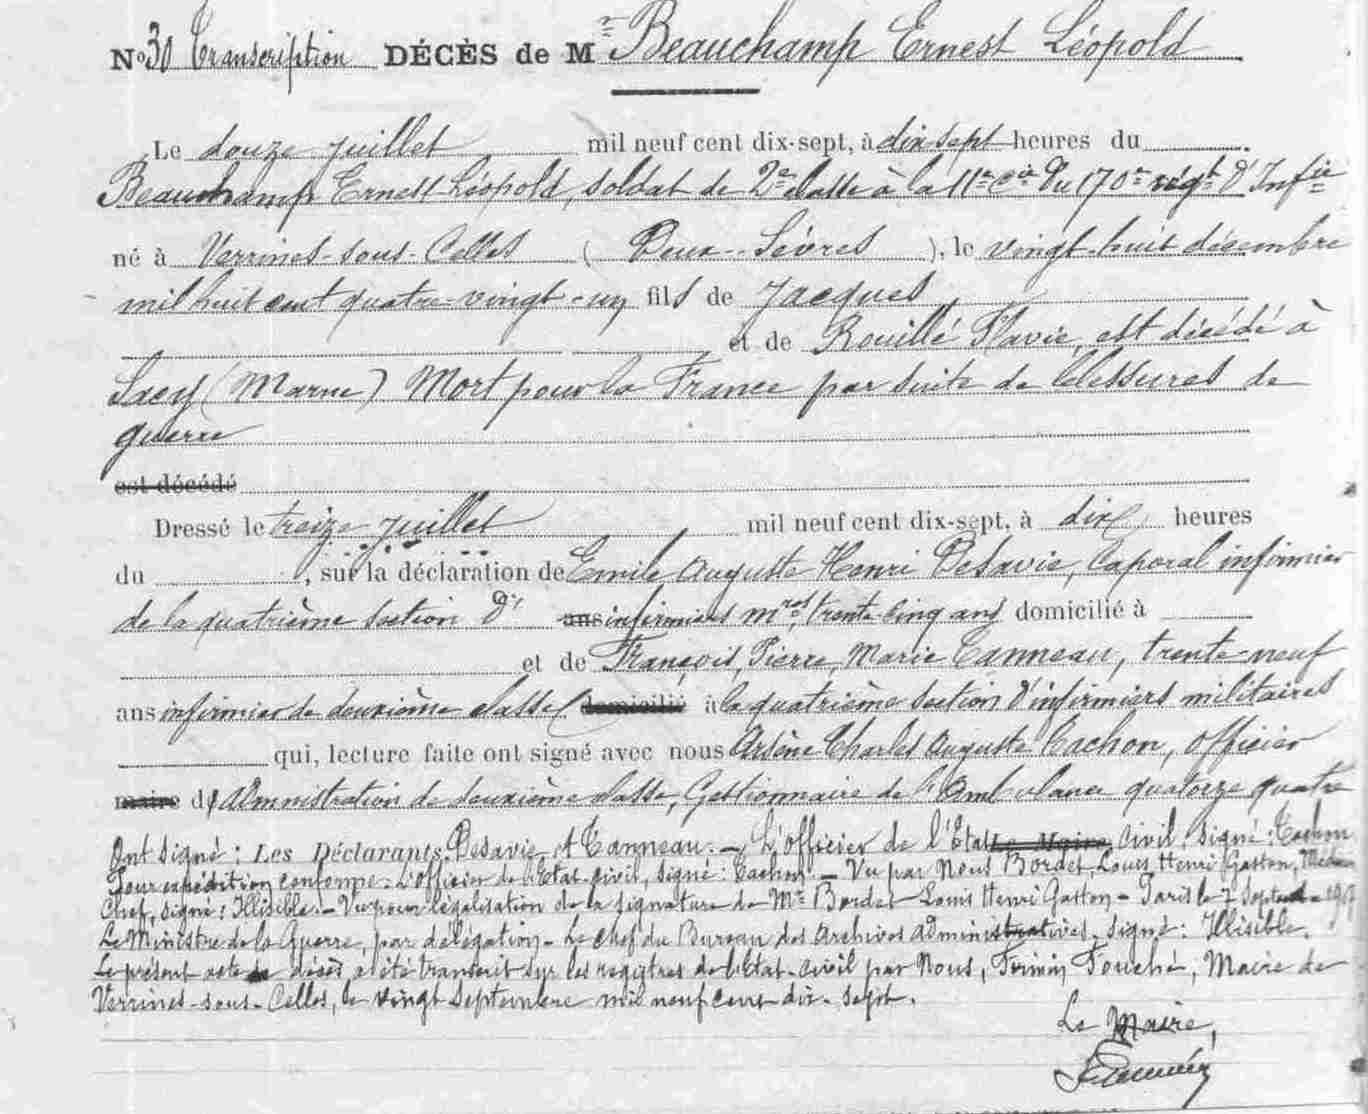 No 30 Transcription DÉCÈS de Mr Beauchamp Ernest Léopold
Le douze juillet mil neuf cent dix-sept, à dix sept heures du
Beauchamp Ernest Léopold, soldat de 2e classe à la 11e Cie du 170e régt d'Infie
né à Verrines-sous-Celles (Deux-Sèvres), le vingt-huit décembre
mil huit cent quatre-vingt-un fils de Jacques
et de Rouillé Flavie, est décédé à
Sacy (Marne) Mort pour la France par suite de blessures de
guerre
est décédé
Dressé le treize juillet mil neuf cent dix-sept, à dix heures
du , sur la déclaration de Emile Auguste Henri Desavie, Caporal infirmier
de la quatrième section d' ans infirmiers mres, trente cinq ans domicilié à
et de François, Pierre, Marie Tanneau, trente-neuf
ans infirmier de deuxième classe domicilié à la quatrième section d'infirmiers militaires
qui, lecture faite ont signé avec nous Arsène Charles Auguste Cachon, officier
maire d'Administration de deuxième classe, Gestionnaire de l'Ambulance quatorze quatre
Ont signé : Les Déclarants: Desavie et Tanneau. - L'officier de l'Etat Le Maire, civil. signé : Cachon
Pour expédition conforme. L'officier de l'Etat-civil, signé : Cachon. - Vu par Nous Bordet, Louis Henri Gaston, Médecin
Chef, signé : Illisible. - Vu pour légalisation de la signature de Mr Bordet Louis Henri Gaston - Paris le 7 Septemb. 1917
Le Ministre de la Guerre, par délégation - Le chef du Bureau des Archives administratives. signé : Illisible.
Le présent acte de décès a été transcrit sur les registres de l'Etat-civil par Nous, Firmin Fouché, Maire de
Verrines-sous-Celles, le vingt Septembre mil neuf cent dix-sept.
Le Maire,